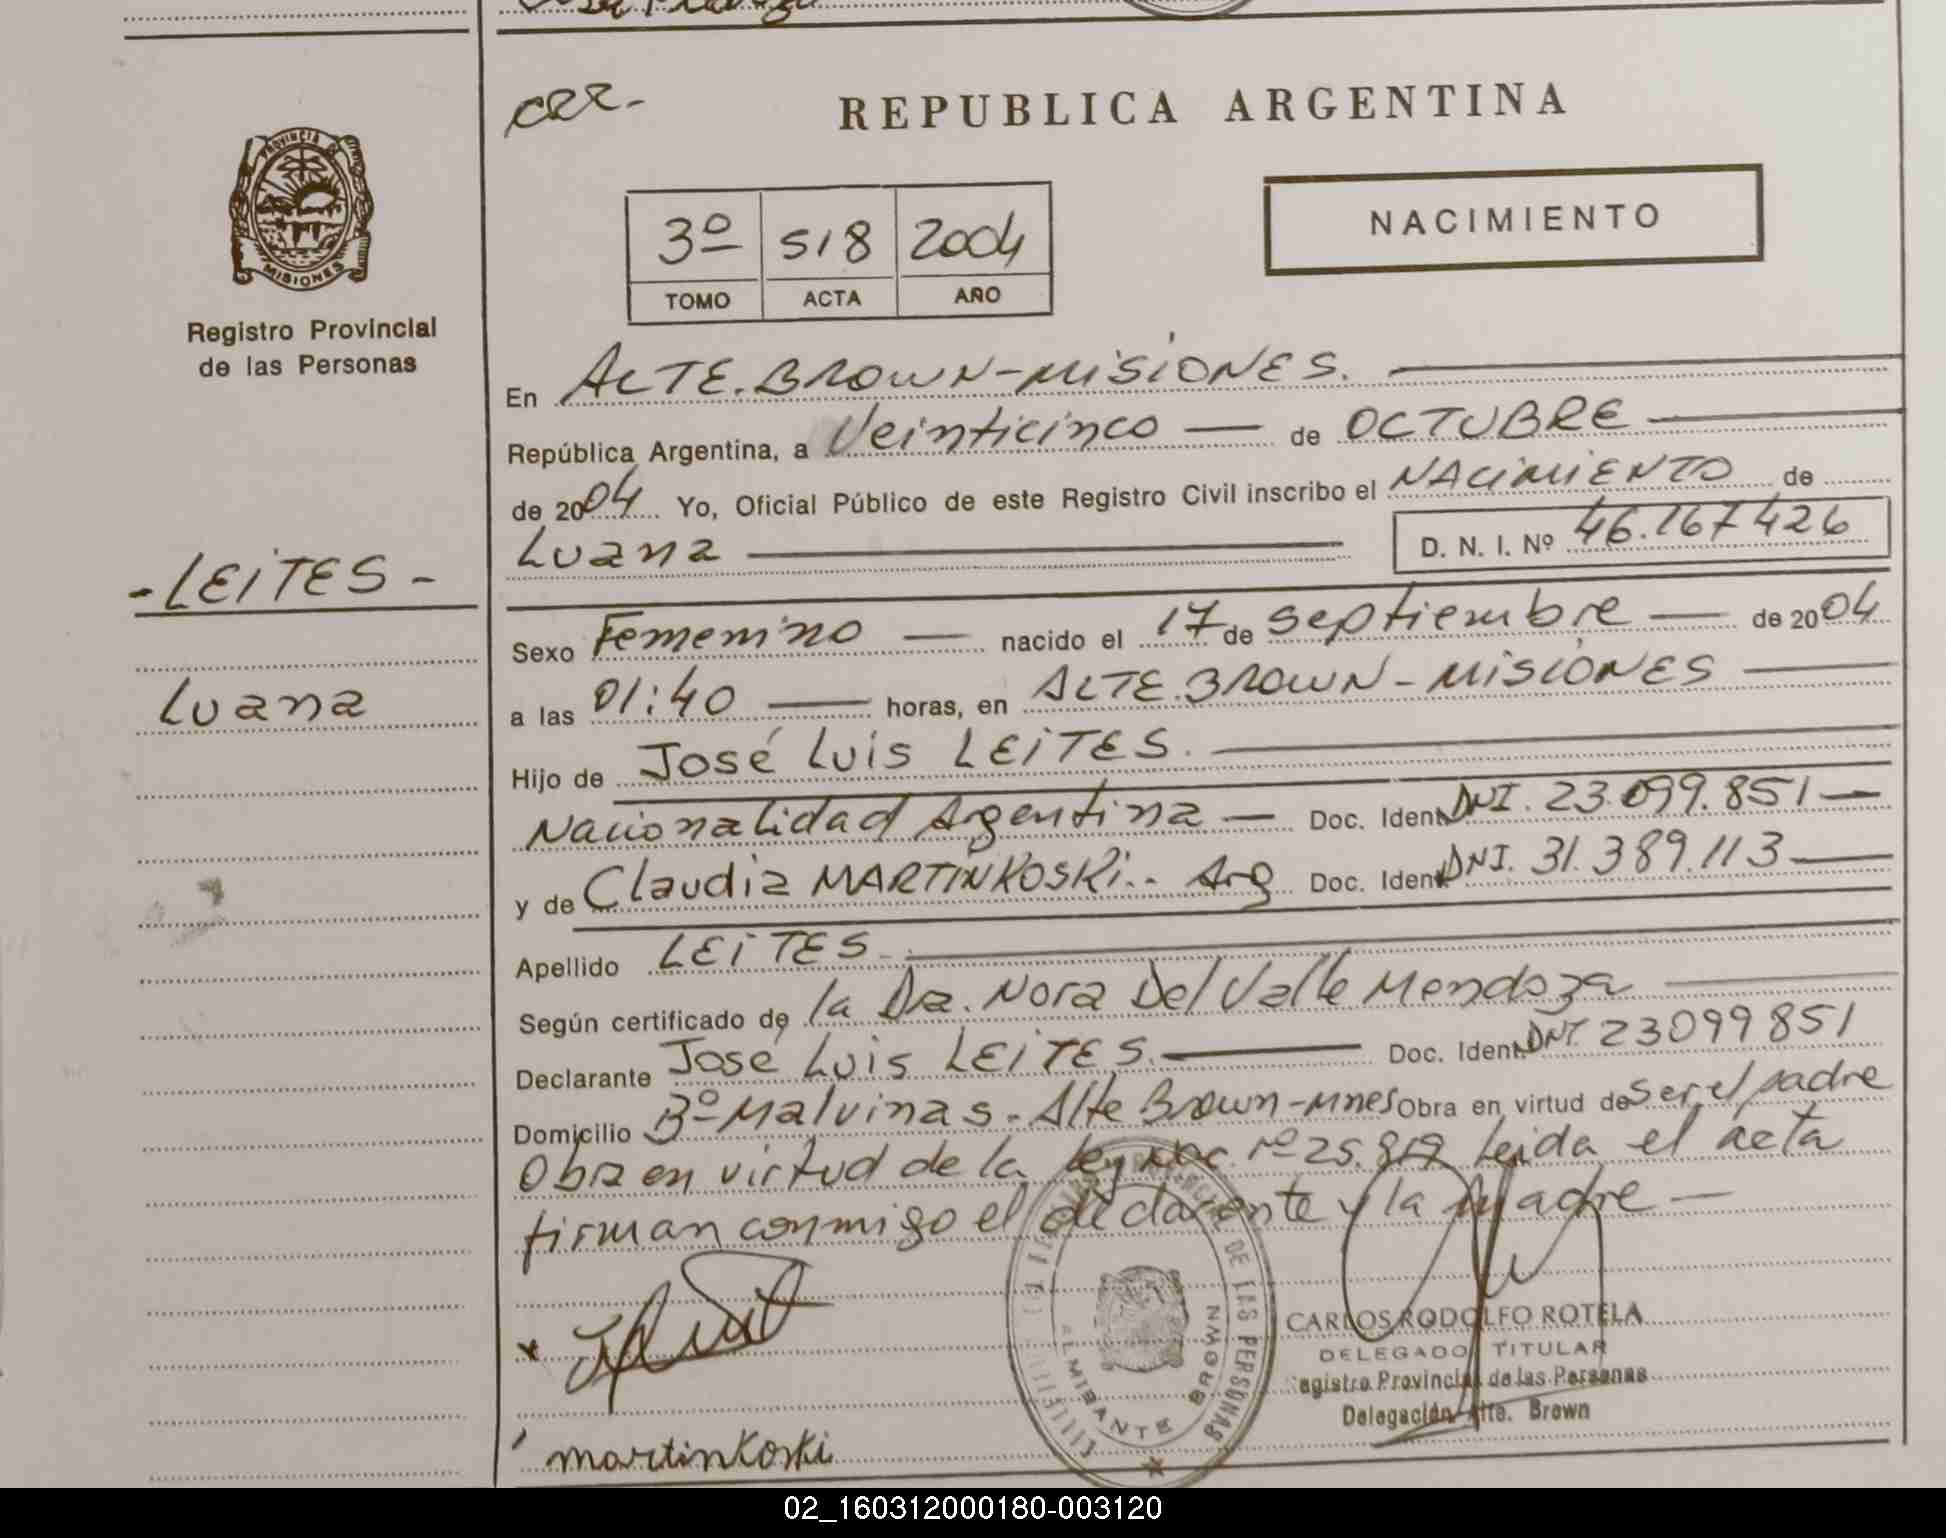 CRR-
REPUBLICA ARGENTINA
PROVINCIA DE
MISIONES
Registro Provincial
de las Personas
3º 518 2004
TOMO ACTA AÑO
NACIMIENTO
En ALTE. BROWN-MISIONES.
República Argentina, a Veinticinco — de OCTUBRE
de 2004 Yo, Oficial Público de este Registro Civil inscribo el NACIMIENTO de
Luana
D. N. I. Nº 46.167426
-LEITES-
Luana
Sexo Femenino — nacido el 17 de septiembre — de 2004
a las 01:40 — horas, en ALTE. BROWN-MISIONES
Hijo de José Luis LEITES.
Nacionalidad Argentina — Doc. Ident. DNI. 23.099.851—
y de Claudia MARTINKOSKI.. Arg Doc. Ident. DNI. 31.389.113—
Apellido LEITES.
Según certificado de la Dra. Nora Del Valle Mendoza
Declarante José Luis LEITES. Doc. Ident. DNI. 23099851
Domicilio Bº Malvinas-Alte Brown-Mnes Obra en virtud de ser el padre
Obra en virtud de la ley Nac. nº 25.819 leida el acta
firman conmigo el declarante y la madre —
DE LAS PERSONAS
ALMIRANTE BROWN
CARLOS RODOLFO ROTELA
DELEGADO TITULAR
egistro Provincial de las Personas
Delegación Alte. Brown
martinkoski
02_160312000180-003120